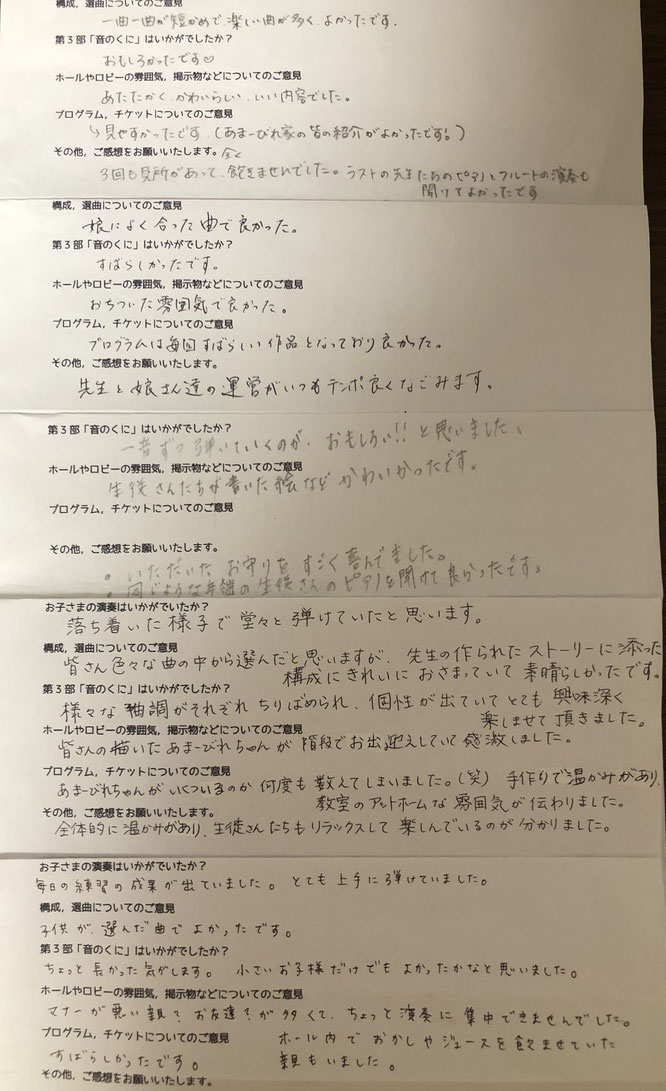 構成，選曲についてのご意見
一曲一曲が短かめで、楽しい曲が多く、よかったです。
第３部「音のくに」はいかがでしたか？
おもしろかったです♡
ホールやロビーの雰囲気，掲示物などについてのご意見
あたたかく、かわいらしい、いい内容でした。
プログラム，チケットについてのご意見
↳見やすかったです。(あまーびれ家の皆の紹介がよかったです！)
その他，ご感想をお願いいたします。全く
3回も見所があって、飽きませんでした。ラストの先生たちのピアノとフルートの演奏も
聞けてよかったです
構成，選曲についてのご意見
娘によく合った曲で良かった。
第３部「音のくに」はいかがでしたか？
すばらしかったです。
ホールやロビーの雰囲気，掲示物などについてのご意見
おちついた雰囲気で良かった。
プログラム，チケットについてのご意見
プログラムは毎回すばらしい作品となっており良かった。
その他，ご感想をお願いいたします。
先生と娘さん達の運営がいつもテンポ良くなごみます。
第３部「音のくに」はいかがでしたか？
一音ずつ弾いていくのが、おもしろい!!と思いました。
ホールやロビーの雰囲気，掲示物などについてのご意見
生徒さんたちが書いた絵などかわいかったです。
プログラム，チケットについてのご意見
その他，ご感想をお願いいたします。
。いただいたお守りをすごく喜んでました。
。同じような年組の生徒さんのピアノを聞けて良かったです。
お子さまの演奏はいかがでいたか？
落ち着いた様子で堂々と弾けていたと思います。
構成，選曲についてのご意見
皆さん色々な曲の中から選んだと思いますが、先生の作られたストーリーに添った
構成にきれいにおさまっていて素晴らしかったです。
第３部「音のくに」はいかがでしたか？
様々な曲調がそれぞれちりばめられ、個性が出ていてとても興味深く
楽しませて頂きました。
ホールやロビーの雰囲気，掲示物などについてのご意見
皆さんの描いたあまーびれちゃんが階段でお出迎えしていて感激しました。
プログラム，チケットについてのご意見
あまーびれちゃんがいくついるのか何度も数えてしまいました。(笑) 手作りで温かみがあり、
教室のアットホームな雰囲気が伝わりました。
その他，ご感想をお願いいたします。
全体的に温かみがあり、生徒さんたちもリラックスして楽しんでいるのが分かりました。
お子さまの演奏はいかがでいたか？
毎日の練習の成果が出ていました。とても上手に弾けていました。
構成，選曲についてのご意見
子供が、選んだ曲でよかったです。
第３部「音のくに」はいかがでしたか？
ちょっと長かった気がします。小さいお子様だけでもよかったかなと思いました。
ホールやロビーの雰囲気，掲示物などについてのご意見
マナーが悪い親？お友達？が多くて、ちょっと演奏に集中できませんでした。
プログラム，チケットについてのご意見 ホール内でおかしやジュースを飲ませていた
すばらしかったです。 親もいました。
その他，ご感想をお願いいたします。